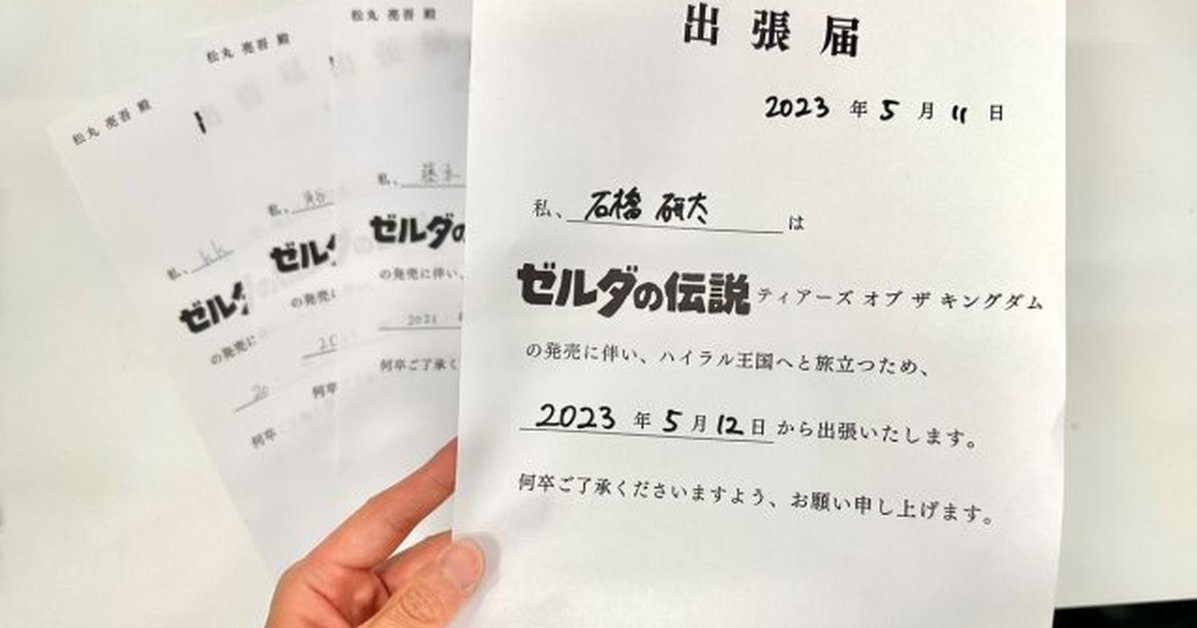 出張届
2023 年 5 月 11 日
私、石橋 研太 は
ゼルダの伝説 ティアーズ オブ ザ キングダム
の発売に伴い、ハイラル王国へと旅立つため、
2023 年 5 月 12 日 から出張いたします。
何卒ご了承くださいますよう、お願い申し上げます。
松丸 亮吾 殿
私、藤永
ゼルダの
の発売に伴い、
2023
何卒ご了承く
松丸 亮吾 殿
私、
ゼルダ
の発売に
何卒
松丸 亮吾 殿
私、kk
ゼルダ
の発売に
何卒